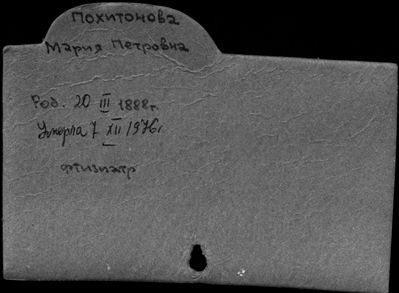 Похитонова
Мария Петровна
Род. 20 III 1888г.
Умерла 7 XII 1976г
фтизиатр